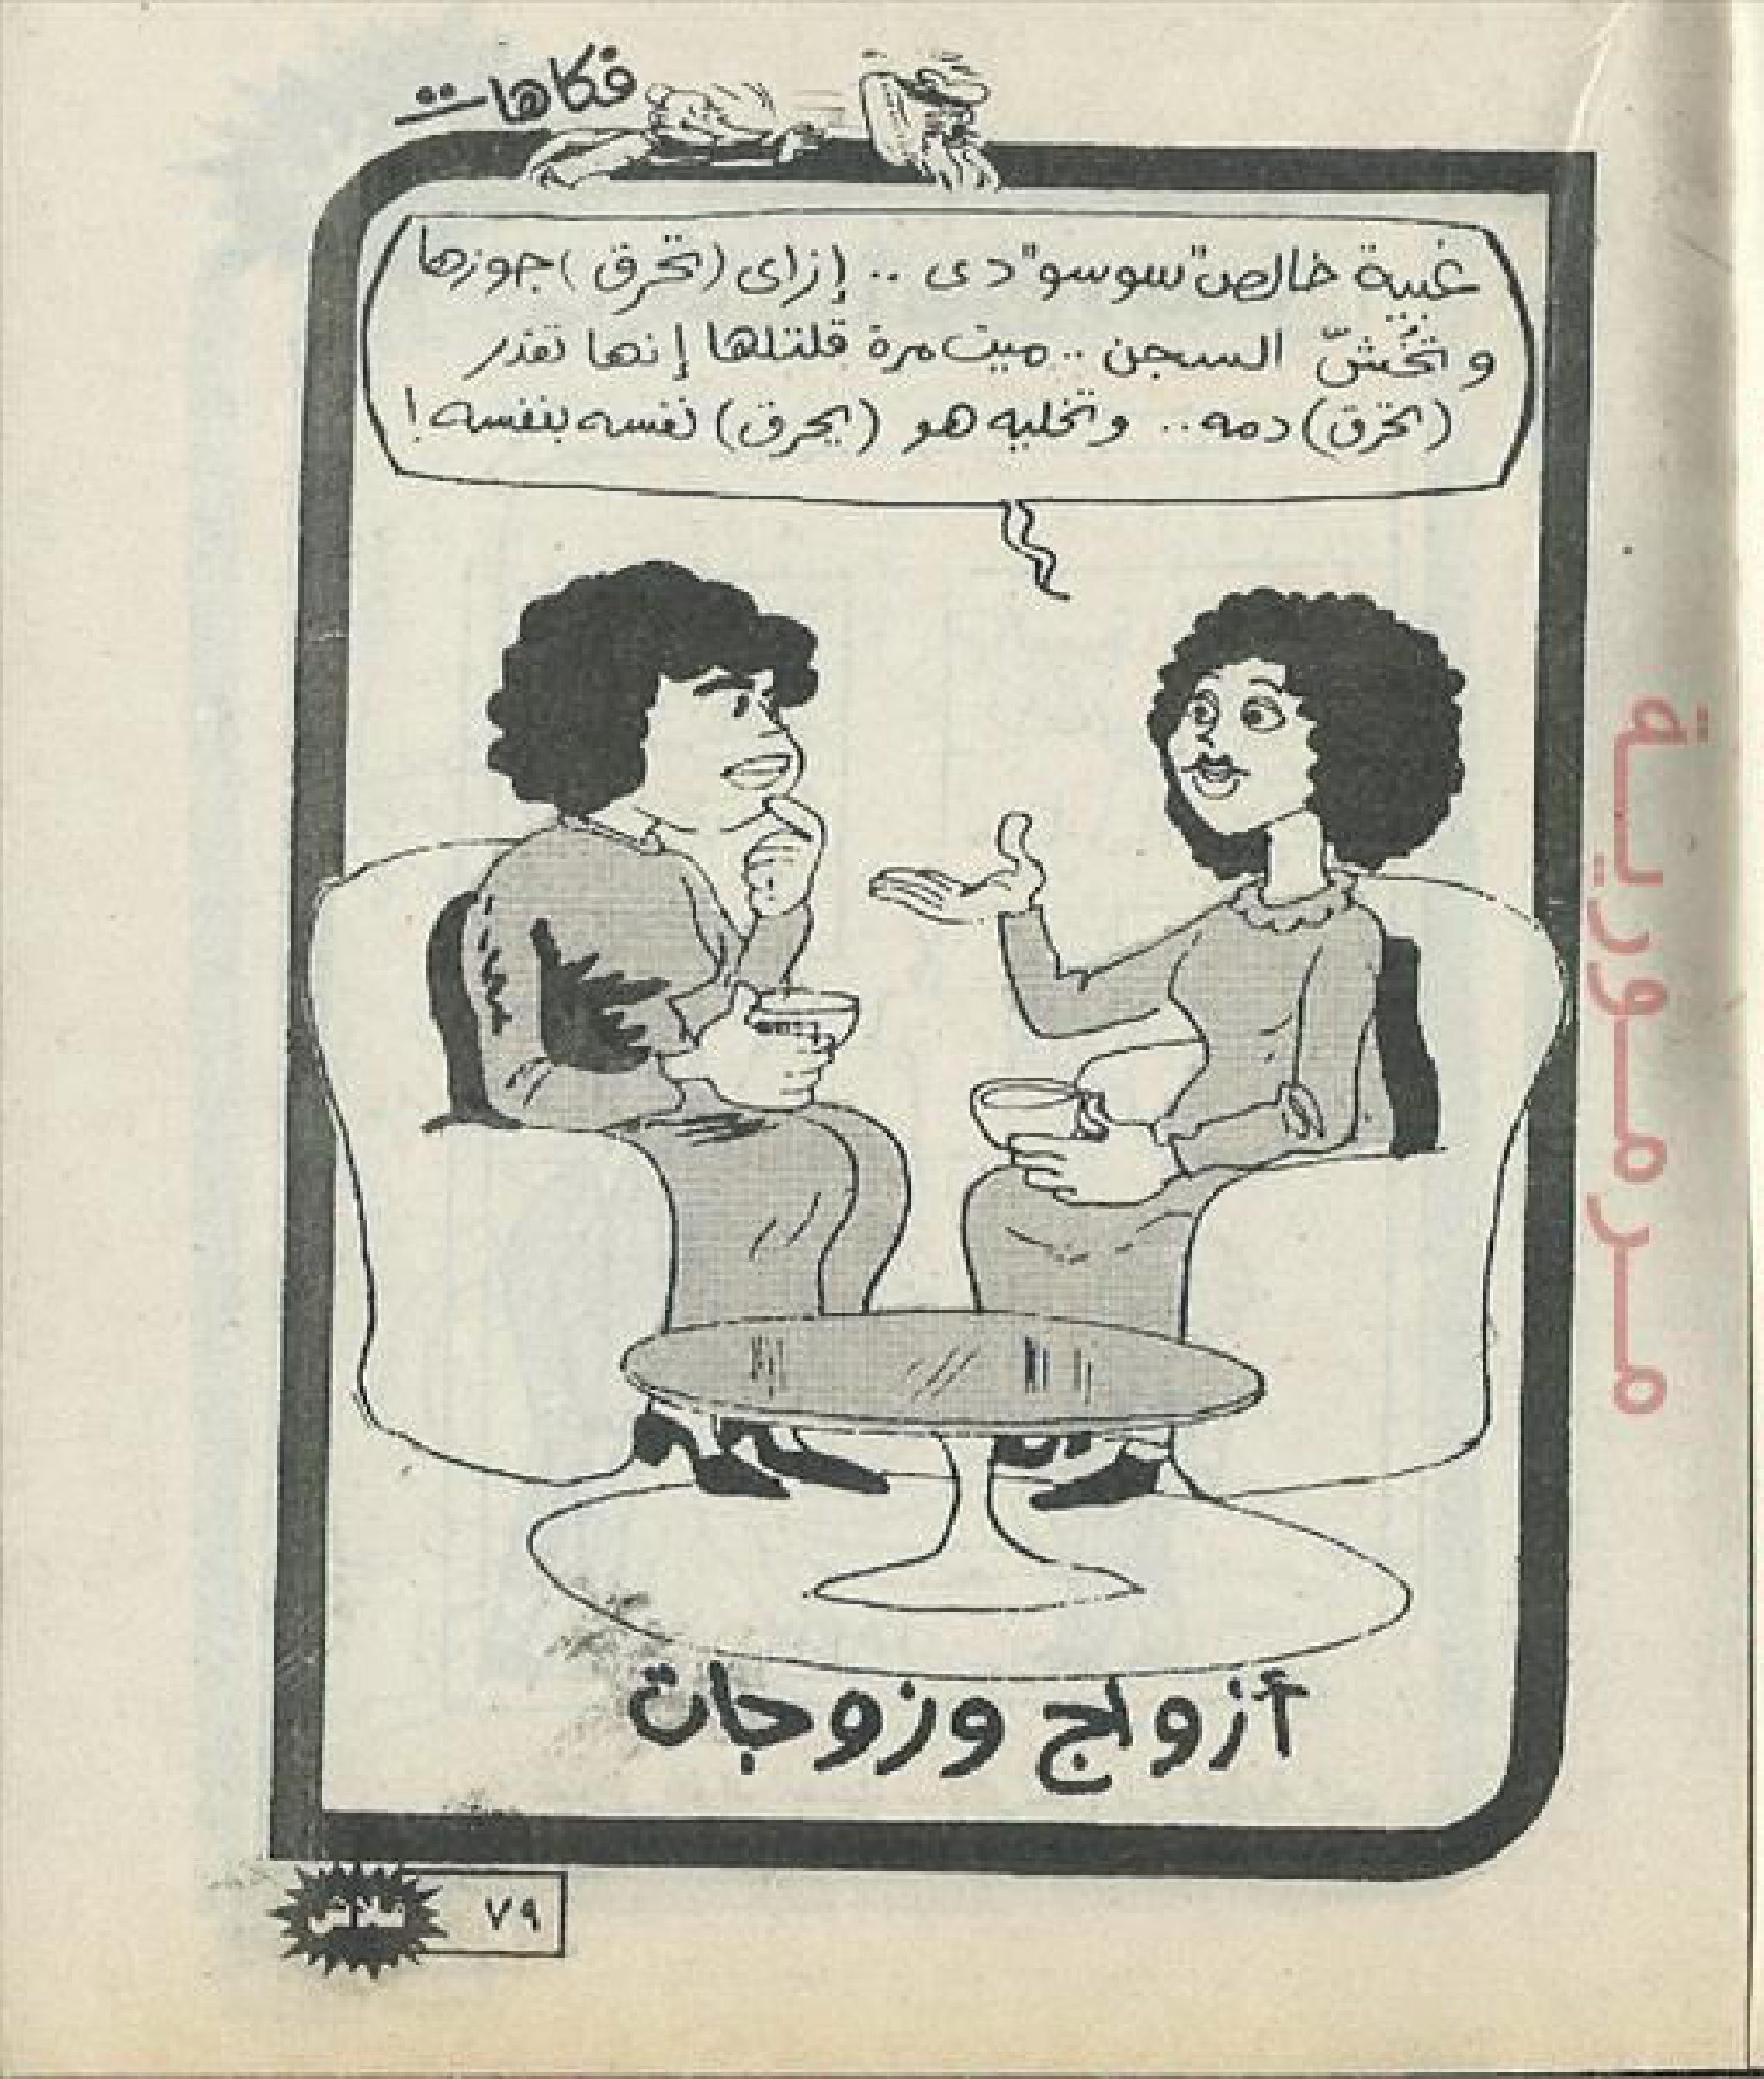 فكاهات
غبية خالص "سوسو" دى .. إزاى (تحرق) جوزها
و تخُشّ السجن .. ميت مرة قلتلها إنها تقدر
(تحرق) دمه .. وتخليه هو (يحرق) نفسه بنفسه !
مرمورية
أزواج وزوجات
٧٩